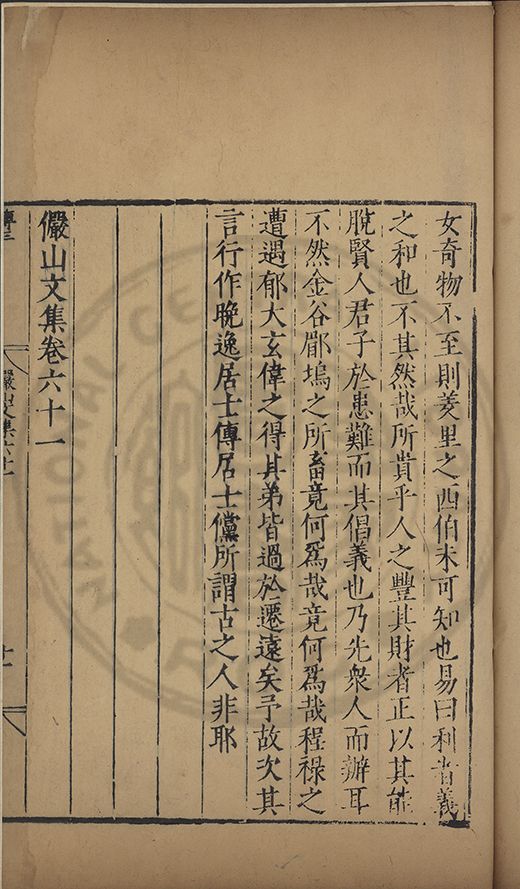 女奇物不至則羑里之西伯未可知也易曰利者義
之和也不其然哉所貴乎人之豐其財者正以其能
脫賢人君子於患難而其倡義也乃先衆人而辦耳
不然金谷郿塢之所畜竟何爲哉竟何爲哉程祿之
遭遇郁大玄偉之得其弟皆過於遷遠矣予故次其
言行作晚逸居士傳居士儻所謂古之人非耶
儼山文集卷六十一
儼山文集六十一